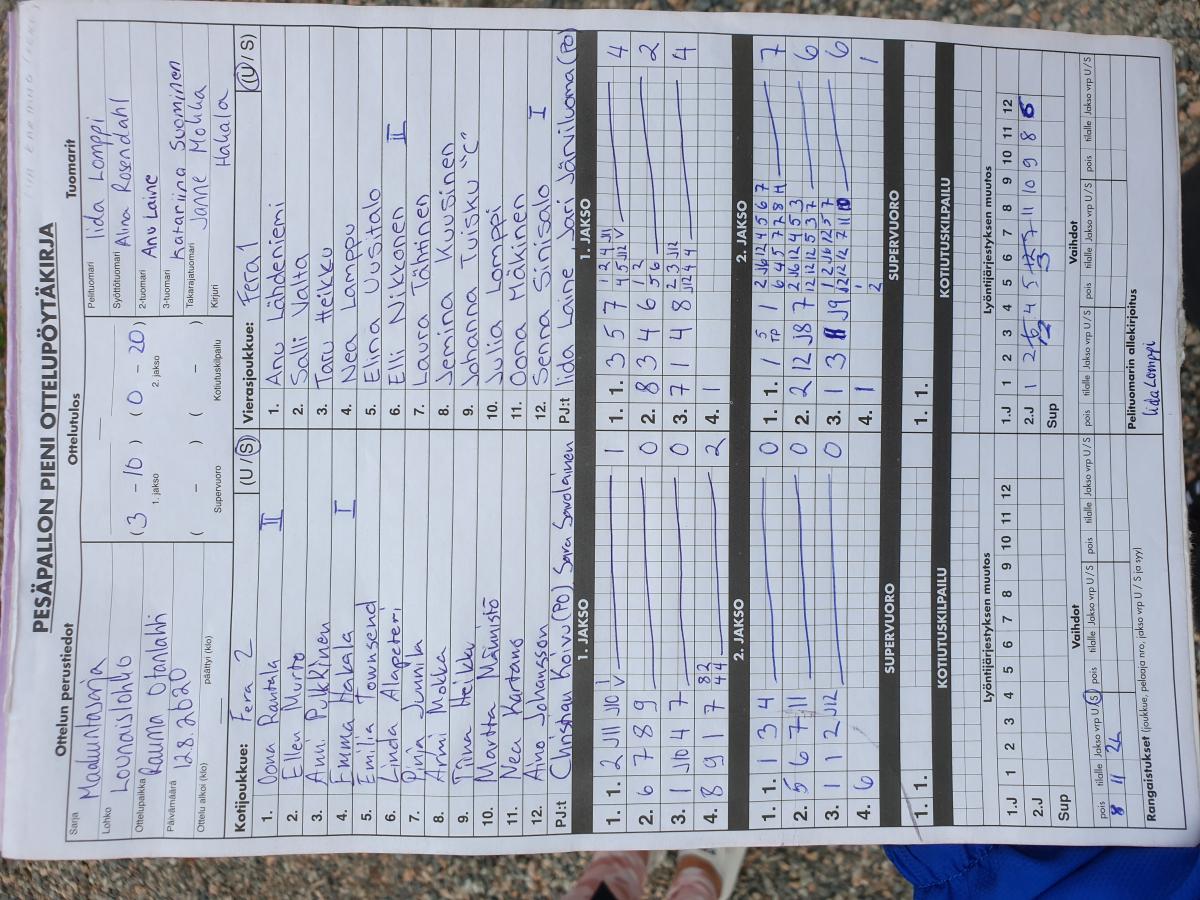 PESÄPALLON PIENI OTTELUPÖYTÄKIRJA
Ottelun perustiedot
Sarja
Maakuntasarja
Lohko
Lounaislohko
Ottelupaikka
Rauma Otanlahti
Päivämäärä
12.8.2020
Ottelu alkoi (klo)
päättyi (klo)
Ottelutulos
(3 - 10) (0 - 20)
1. jakso 2. jakso
( - ) ( - )
Supervuoro Kotiutuskilpailu
Tuomarit
Pelituomari Iida Lomppi
Syöttötuomari Alina Rosendahl
2-tuomari Anu Laine
3-tuomari Katariina Suominen
Takarajatuomari Janne Mokka
Kirjuri Hakala
Kotijoukkue: Fera 2 (U / S)
1. Oona Rantala II
2. Ellen Murto
3. Anni Pulkkinen
4. Emma Hakala I
5. Emilia Townsend
6. Linda Alapeteri
7. Pinja Junnila
8. Armi Mokka
9. Tiina Heikku
10. Martta Männistö
11. Nea Kartano
12. Aino Johansson
PJ:t Christian Koivu (PO) Sara Savolainen
Vierasjoukkue: Fera 1 (U / S)
1. Anu Lähdeniemi
2. Salli Valta
3. Taru Heikku
4. Nea Lamppu
5. Elina Uusitalo
6. Elli Nikkonen II
7. Laura Tähtinen
8. Jemina Kuusinen
9. Johanna Tuisku "C"
10. Julia Lomppi
11. Oona Mäkinen
12. Senna Sinisalo I
PJ:t Iida Laine Jari Järviluoma (PO)
1. JAKSO
1. 1. 2 J11 J10 1 V 1
2. 6 7 8 9 0
3. 1 J10 4 7 0
4. 8 9 1 7 8 2 4 4 2
1. JAKSO
1. 1. 3 5 7 1 2 4 J11 4 5 J12 V 4
2. 8 3 4 6 1 2 5 6 2
3. 7 1 4 8 2 3 J12 J12 4 4 4
4. 1
2. JAKSO
1. 1. 1 3 4 0
2. 5 6 7 11 0
3. 1 1 2 J12 0
4. 6
2. JAKSO
1. 1. 1 5 TP 1 2 J6 12 4 5 6 7 6 4 5 7 7 8 11 7
2. 2 12 J8 7 2 J6 12 4 5 3 12 12 12 5 3 7 6
3. 1 3 J9 1 2 J6 12 5 7 12 12 12 7 11 10 6
4. 1 1 2 1
SUPERVUORO
1. 1.
SUPERVUORO
1. 1.
KOTIUTUSKILPAILU
KOTIUTUSKILPAILU
Lyöntijärjestyksen muutos
1.J 1 2 3 4 5 6 7 8 9 10 11 12
2.J
Sup
Lyöntijärjestyksen muutos
1.J 1 2 3 4 5 6 7 8 9 10 11 12
2.J 1 2 12 4 5 3 7 11 10 9 8 6
Sup
Vaihdot
pois tilalle Jakso vrp U / S pois tilalle Jakso vrp U / S pois tilalle Jakso vrp U / S
8 11 2L
Vaihdot
pois tilalle Jakso vrp U / S pois tilalle Jakso vrp U / S pois tilalle Jakso vrp U / S
Rangaistukset (joukkue, pelaaja nro, jakso vrp U / S ja syy)
Pelituomarin allekirjoitus
Iida Lomppi